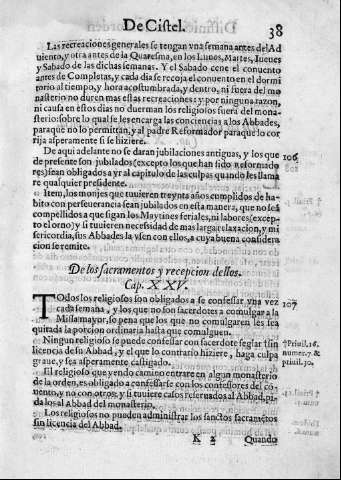 De Cistel.
38
Las recreaciones generales se tengan vna semana antes del Ad
uiento, y otra antes de la Quaresma, en los Lunes, Martes, Iueues
y Sabado de las dichas semanas. Y el Sabado cene el conuento
antes de Completas, y cada dia se recoja el conuento en el dormi
torio al tiempo, y hora acostumbrada, y dentro, ni fuera del mo
nasterio no duren mas estas recreaciones: y por ninguna razon,
ni causa en estos dias no duerman los religiosos fuera del monas-
terio: sobre lo qual se les encarga las conciencias a los Abbades,
para que no lo permittan, y al padre Reformador para que lo cor
rija asperamente si se hiziere.
De aqui adelante no se daran jubilaciones antiguas, y los que
de presente son jubilados (excepto los que han sido Reformado
res) sean obligados a yr al capitulo de las culpas quando les llama
re qualquier presidente.
106
Item, los monjes que tuuieren treynta años cumplidos de ha-
bito con perseuerancia sean jubilados en esta manera, que no seã
compellidos a que sigan los Maytines feriales, ni labores, (excep-
to el oro) y si tuuieren necessidad de mas larga relaxacion, y mi
sericordia, sus Abbades la vsen con ellos, a cuya buena considera
cion se remite.
De los sacramentos y recepcion dellos.
Cap. XXV.
TOdos los religiosos son obligados a se confessar vna vez
cada semana, y los que no son sacerdotes a comulgar a la
Missa mayor, so pena que los que no comulgaren les sea
quitada la porcion ordinaria hasta que comulguen.
107
Ningun religioso se puede confessar con sacerdote seglar sin
licencia de su Abbad, y el que lo contrario hiziere, haga culpa
graue, y sea asperamente castigado.
Priuil. 16.
numer. 7. &
priuil. 30.
El religioso que yendo camino entrare en algun monasterio
de la orden, es obligado a confessarse con los confessores del co-
uento, y no con otros, y si tuuiere casos reseruados al Abbad, pi-
da los al Abbad del monasterio.
Los religiosos no pueden administrar los sanctos sacramẽtos
sin licencia del Abbad.
K 2
Quando